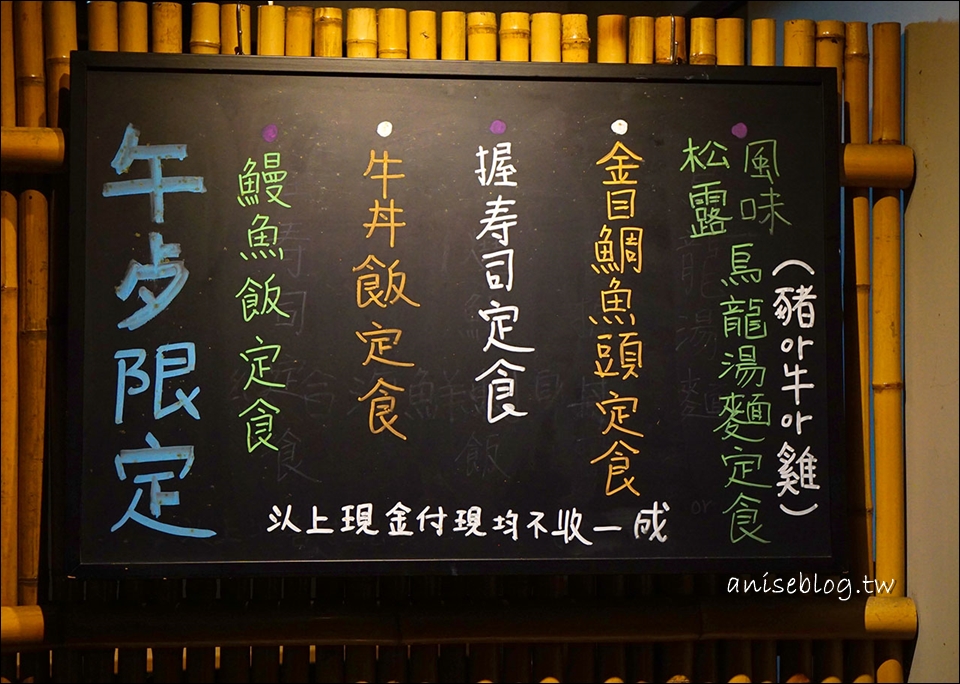 風味
松露
烏龍湯麵定食
(豬or牛or雞)
金目鯛魚頭定食
握寿司定食
牛丼飯定食
鰻魚飯定食
午歺限定
以上現金付現均不收一成
aniseblog.tw